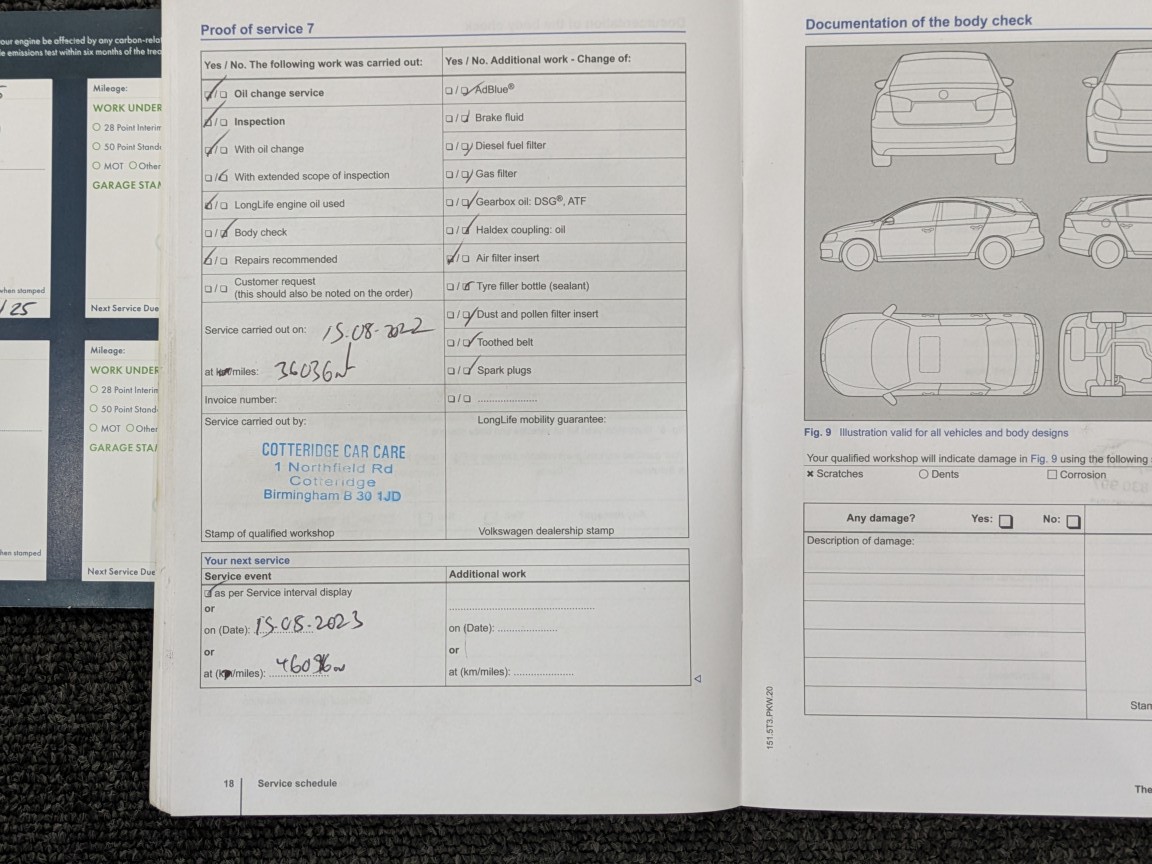 our engine be affected by any carbon-rela
e emissions test within six months of the trea
/ 25
when stamped
hen stamped
Mileage:
WORK UNDER
28 Point Interim
50 Point Stand
MOT Other
GARAGE STA
Next Service Due
Mileage:
WORK UNDER
28 Point Interim
50 Point Stand
MOT Other
GARAGE STA
Next Service Due
Proof of service 7
Yes / No. The following work was carried out:
Oil change service
Inspection
With oil change
With extended scope of inspection
LongLife engine oil used
Body check
Repairs recommended
Customer request
(this should also be noted on the order)
Service carried out on: 15.08-2022
at km/miles: 36036
Invoice number:
Service carried out by:
COTTERIDGE CAR CARE
1 Northfield Rd
Cotteridge
Birmingham B 30 1JD
Stamp of qualified workshop
Yes / No. Additional work - Change of:
AdBlue®
Brake fluid
Diesel fuel filter
Gas filter
Gearbox oil: DSG®, ATF
Haldex coupling: oil
Air filter insert
Tyre filler bottle (sealant)
Dust and pollen filter insert
Toothed belt
Spark plugs
LongLife mobility guarantee:
Volkswagen dealership stamp
Your next service
Service event
as per Service interval display
or
on (Date): 15.08.2023
or
at (km/miles):
Additional work
on (Date):
or
at (km/miles):
18 Service schedule
Documentation of the body check
Fig. 9 Illustration valid for all vehicles and body designs
Your qualified workshop will indicate damage in Fig. 9 using the following
× Scratches
Dents
Corrosion
Any damage? Yes: No:
Description of damage:
Stan
151.5T3.PKW.20
The